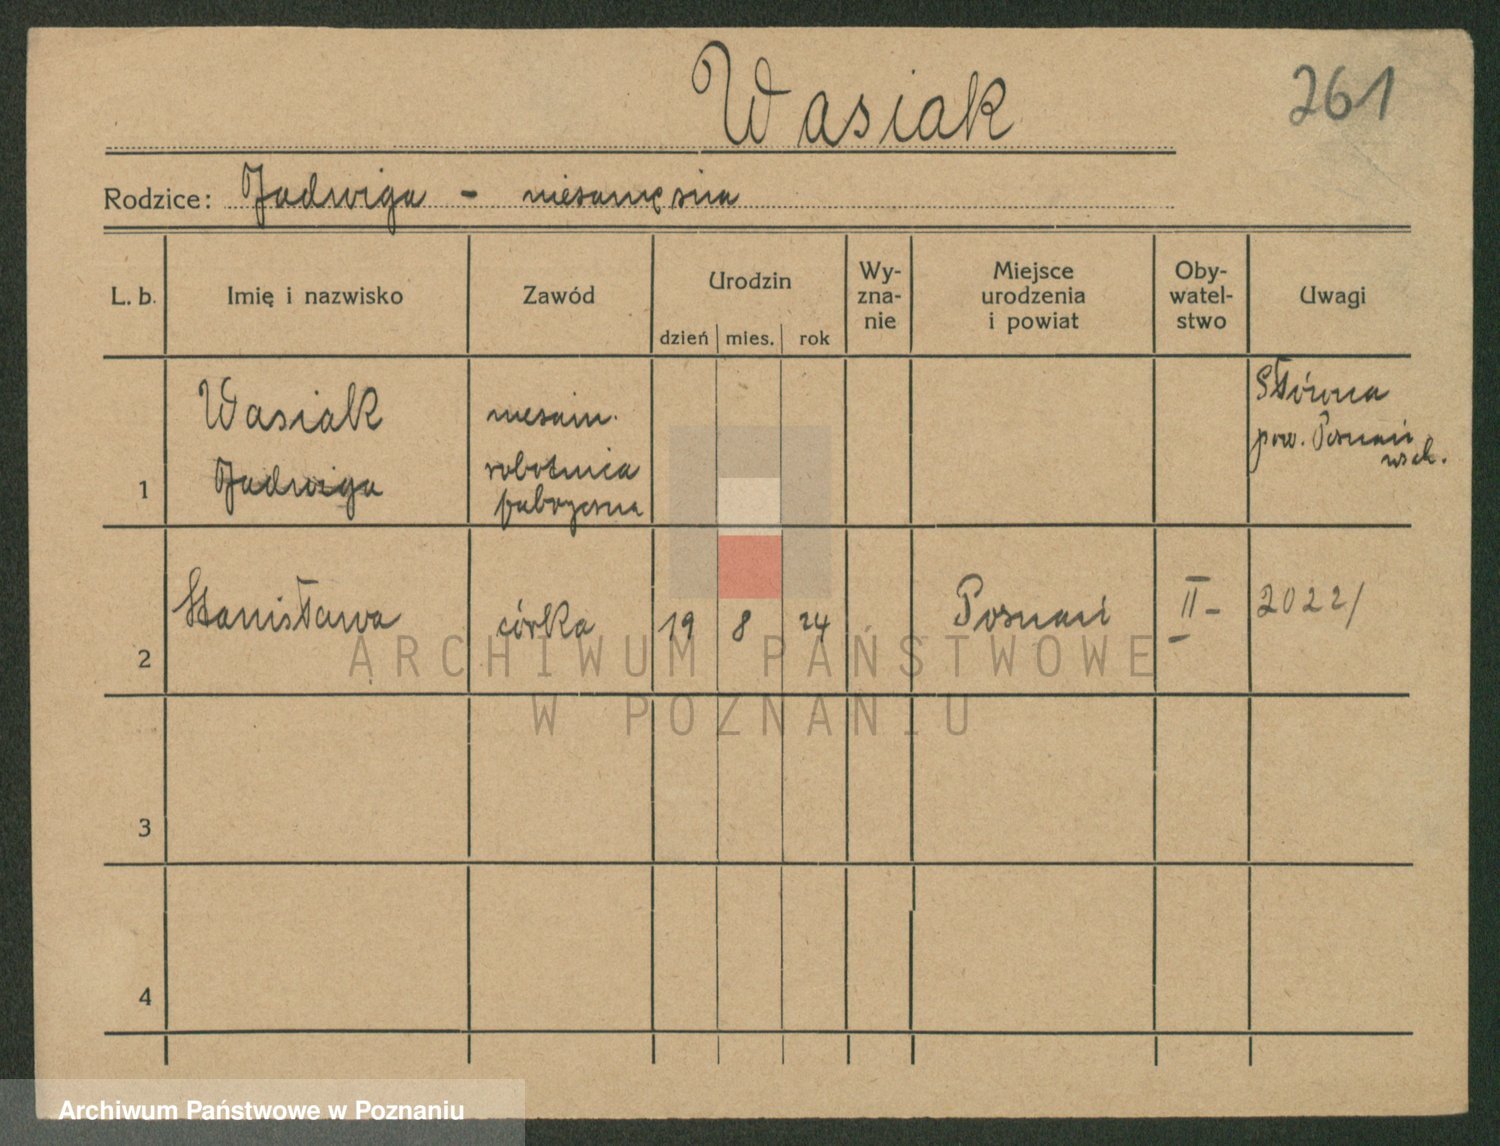 Wasiak
261
Rodzice: Jadwiga - niezamężna
L. b. Imię i nazwisko Zawód Urodzin Wy-
zna-
nie Miejsce
urodzenia
i powiat Oby-
watel-
stwo Uwagi
dzień mies. rok
1 Wasiak
Jadwiga
niezam.
robotnica
fabryczna
Główna
pow. Poznań
wsch.
2 Stanisława córka 19 8 24 Poznań II- 2022/
3
4
ARCHIWUM PAŃSTWOWE
W POZNANIU
Archiwum Państwowe w Poznaniu